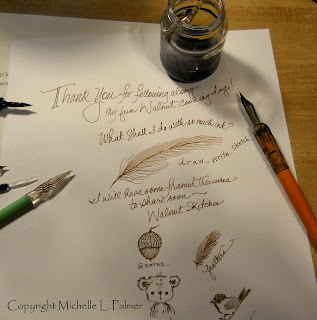 Thank You for following along
my fun Walnut cooking day!
What shall I do with so much ink?
draw write sketch
I will have some framed treasures
to share soon
Walnut Sketches
acorns
feathers
Copyright Michelle L. Palmer